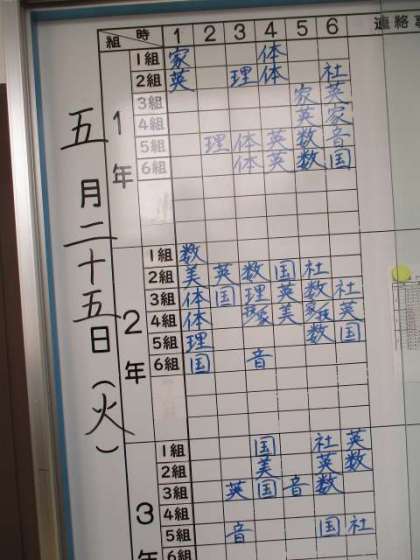 五月二十五日(火)
組 時 1 2 3 4 5 6 連絡事
1年
1組 家 体
2組 英 理 体 社
3組 家 英
4組 英 家
5組 理 体 英 数 音
6組 体 英 数 国
2年
1組 数
2組 美 英 数 国 社
3組 体 国 理 英 数 社
4組 体 美 英
5組 理 数 国
6組 国 音
3年
1組 国 社 英
2組 美 英 数
3組 英 国 音 数
4組
5組 音 国 社
6組